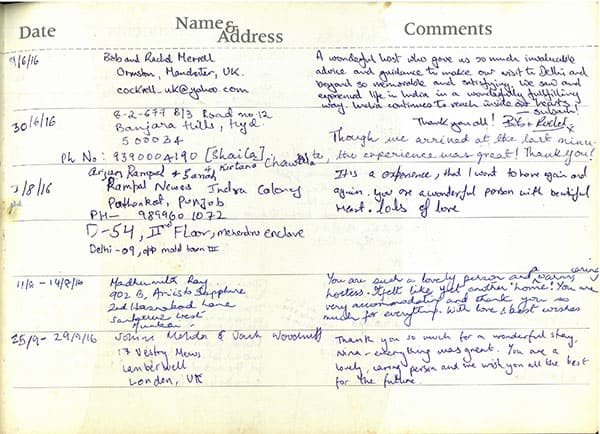 Date
Name & Address
Comments
9/6/16
Bob and Rachel Merrell
Ormston, Manchester, UK.
cockrell_uk@yahoo.com
A wonderful host who gave us so much invaluable
advice and guidance to make our visit to Delhi and
beyond so memorable and satisfying. We saw and
experienced life in India in a wonderfully fulfilling
way. India continues to reach inside our hearts
Thank you all! Bob & Rachel x
30/6/16
8-2-677 B/3 Road no. 12
Banjara Hills, Hyd
500034
Ph No: 9390004190 [Shaila]
Though we arrived at the last minute, the experience was great! Thank you!
/8/16
Arjun Rampal & Kirtana Chawla
Rampal Newes Indra Colony
Pathankot, Punjab
PH- 989960 1072
D-54, IInd Floor, enclave
Delhi-09, opp model town III
It is a experience, that I want to have again and
again. you are a wonderful person with beautiful
Heart. lots of love
11/9 - 14/9/16
Madhumita Ray
902 B, Sapphire
2nd Hasnabad Lane
Santacruz West
You are such a lovely person and a warm, caring
hostess. It felt like yet another 'home'! You are
very accommodating and thank you so
much for everything. With love & best wishes
25/9 - 29/9/16
& Jack Woodruff
17 Vestry Mews
Camberwell
London, UK
Thank you so much for a wonderful stay,
Nina - everything was great. You are a
lovely, caring person and we wish you all the best
for the future.